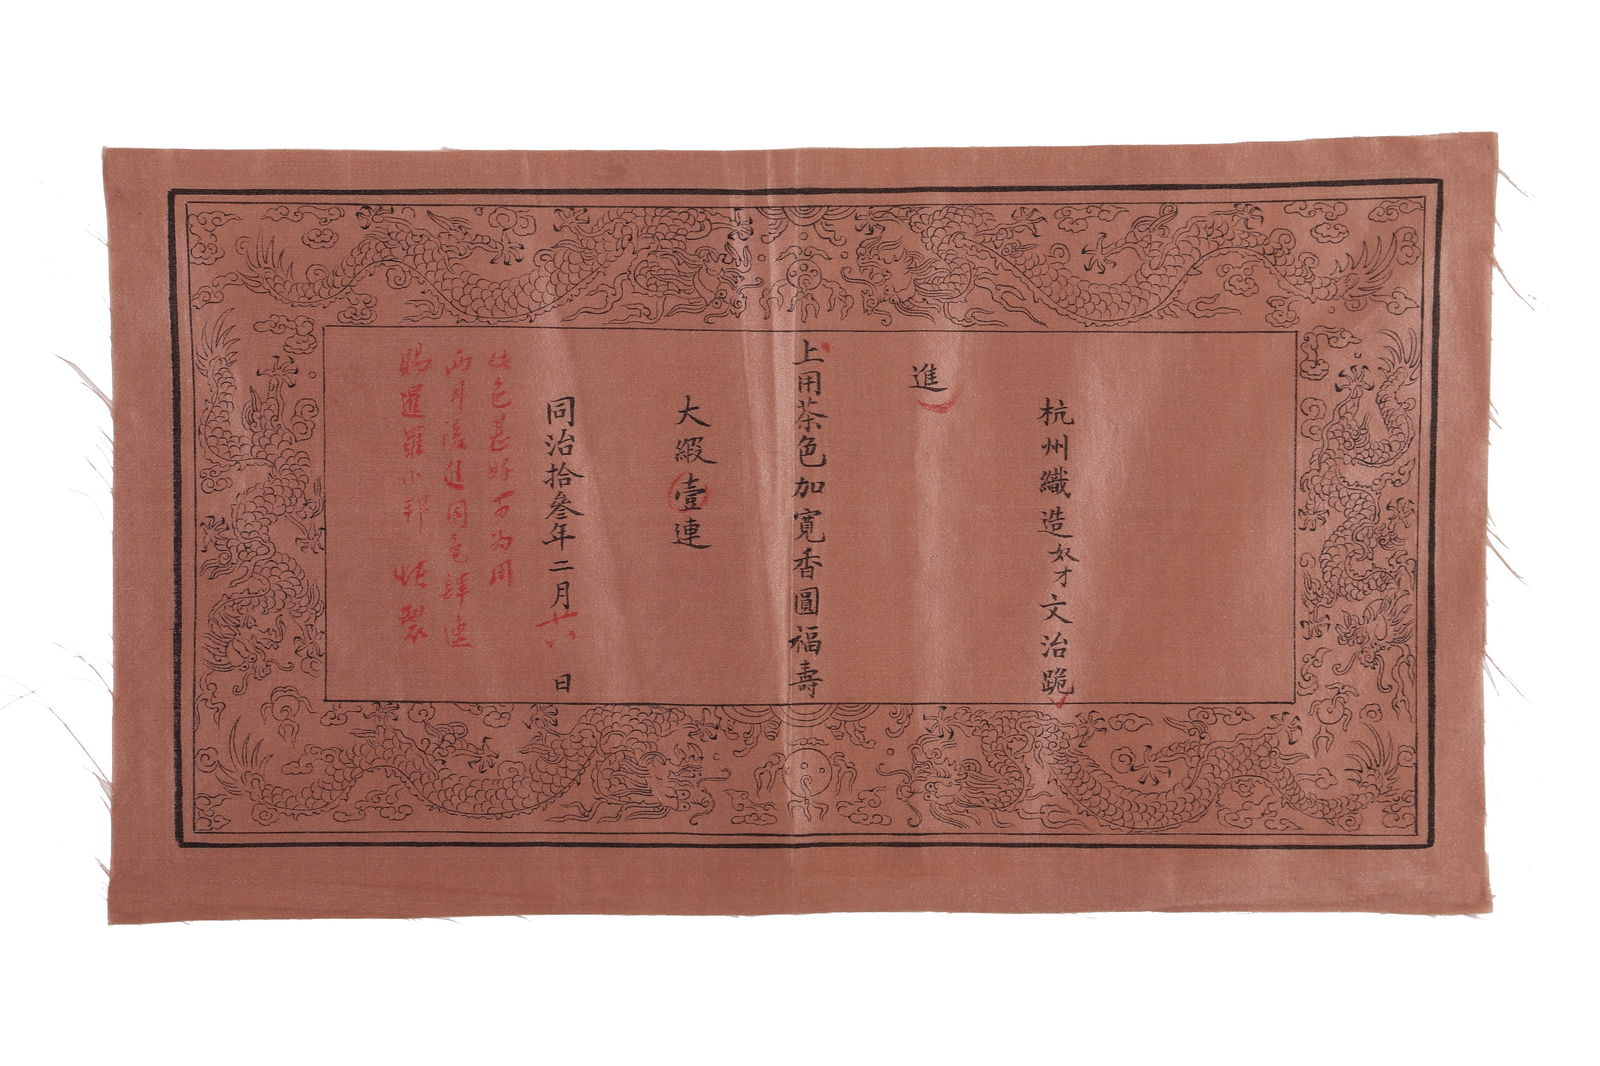 杭州織造奴才文治跪
進
上用茶色加寬香圓福壽
大緞壹連
同治拾叁年二月廿八日
此色甚好可為用
兩月後進同色肆連
賜暹羅小邦 製